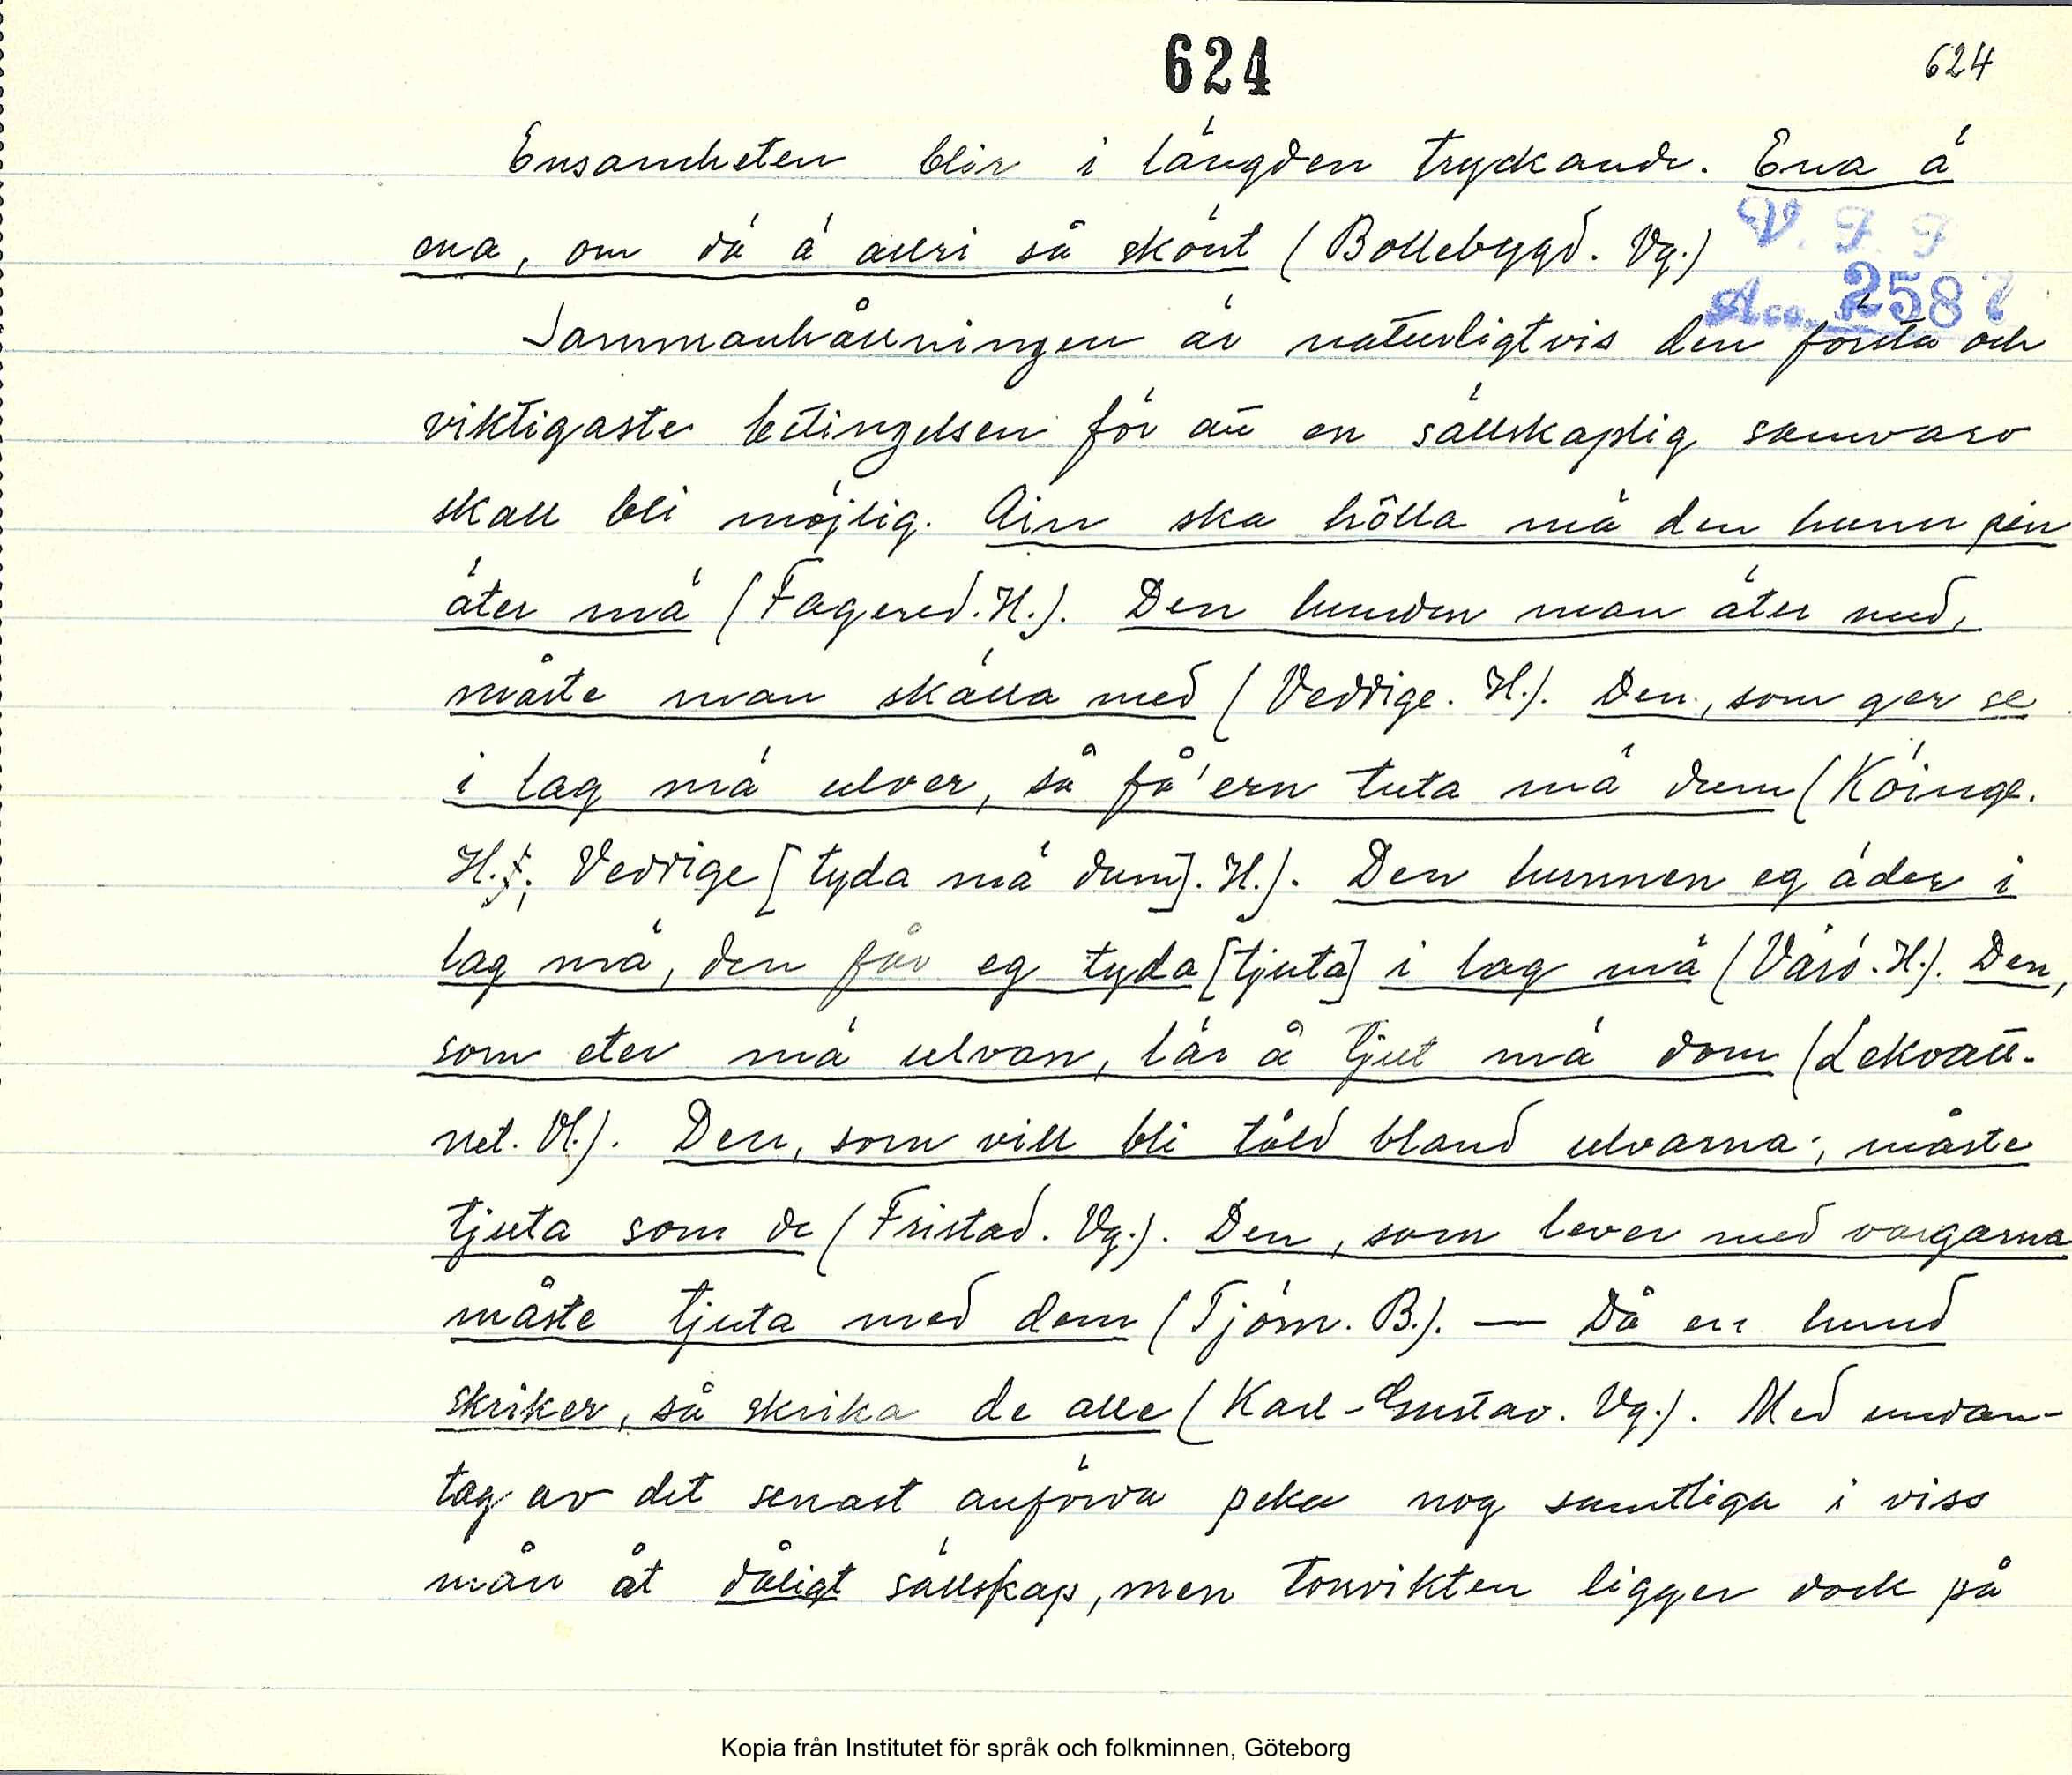 624
624
Ensamheten blir i längden tryckande. Ena ä
ena, om dä ä alldri så skönt (Bollebygd. Vg.)
V. F. F
Acc. 2587
Sammanhållningen är naturligtvis den första och
viktigaste betingelsen för att en sällskaplig samvaro
skall bli möjlig. Ain ska hôlla mä den hunn pin
äter mä (Fagered. H.). Den hunden man äter med,
måste man skälla med (Veddige. H.). Den, som ger se
i lag mä ulver, så få'ern tuta mä dum (Köinge.
H.; Veddige [tyda mä dum]. H.). Den hunnen eg äder i
lag mä, den får eg tyda [tjuta] i lag mä (Värö. H.). Den,
som eter mä ulvan, lär å tjut mä dom (Lekvatt-
net. Vl.). Den, som vill bli tåld bland ulvarna, måste
tjuta som de (Fristad. Vg.). Den, som lever med vargarna
måste tjuta med dem (Tjörn. B.). — Då en hund
skriker, så skrika de alle (Karl-Gustav. Vg.). Med undan-
tag av det senast anförda peka nog samtliga i viss
mån åt dåligt sällskap, men tonvikten ligger dock på
Kopia från Institutet för språk och folkminnen, Göteborg